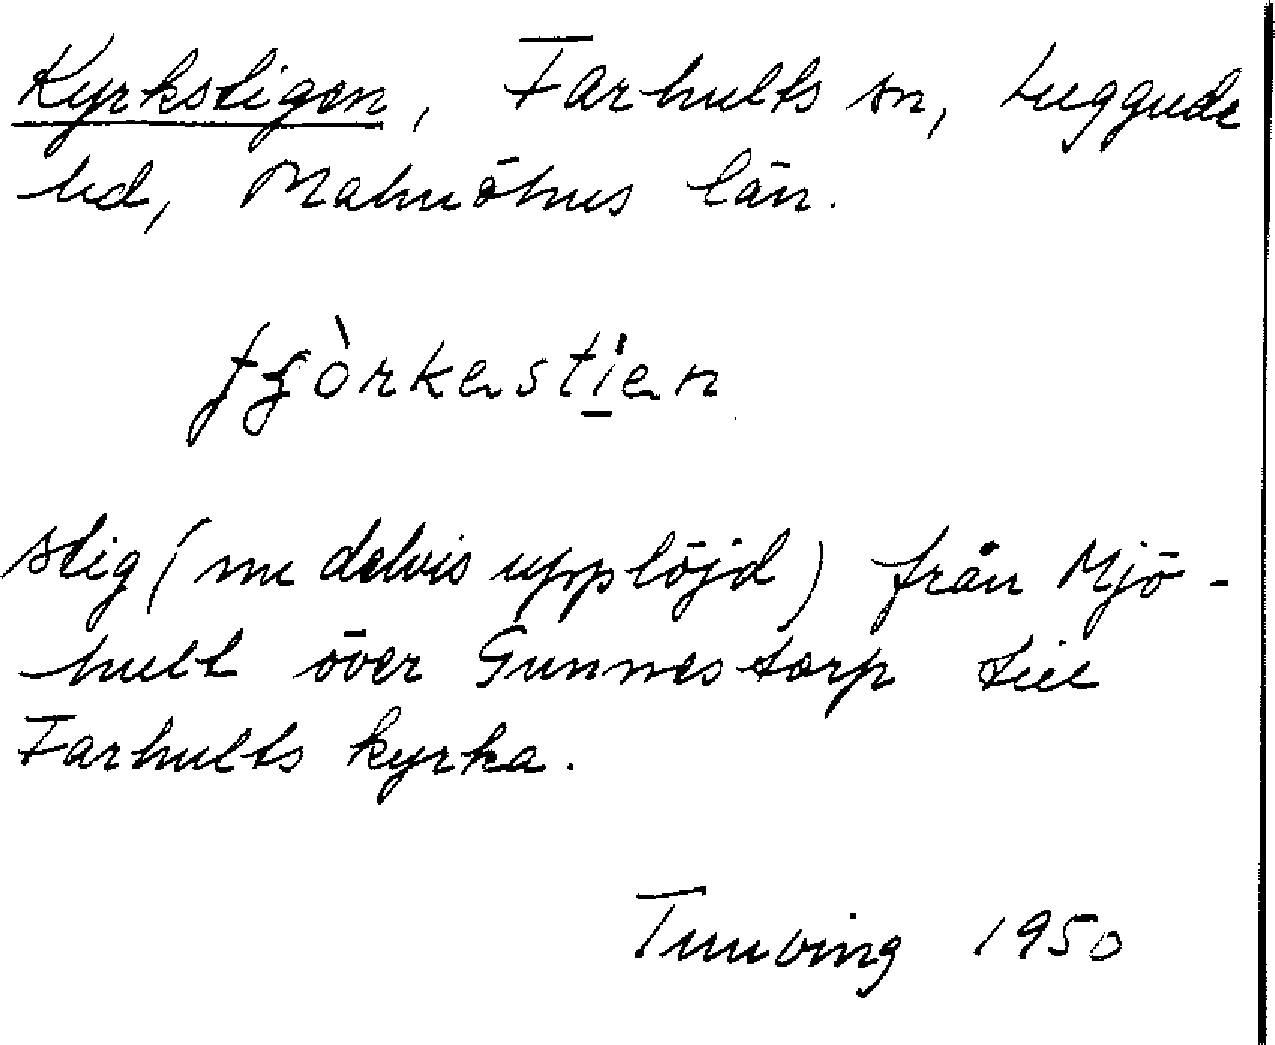 Kyrkstigen, Farhults sn, Luggude
hd, Malmöhus län.
tjòrkastien
stig (nu delvis upplöjd) från Mjö-
hult över Gunnestorp till
Farhults kyrka.
Tunving 1950